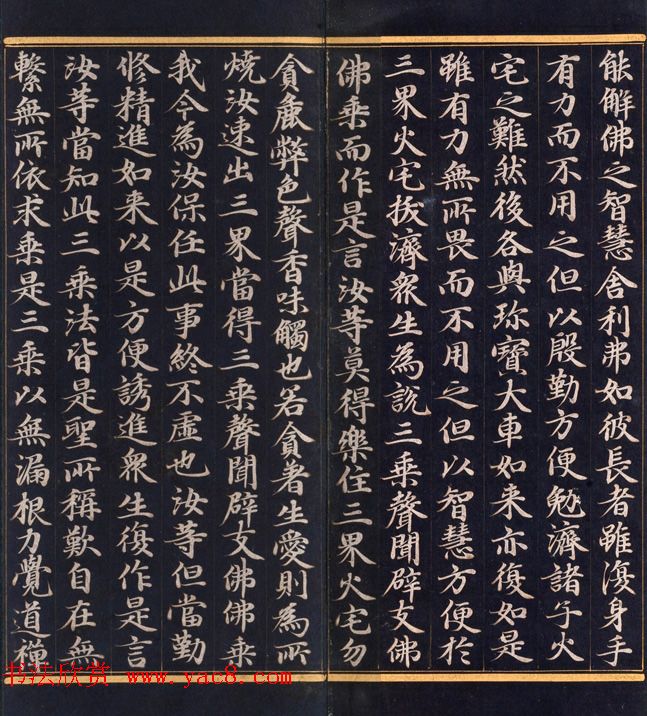 能解佛之智慧舍利弗如彼長者雖復身手
有力而不用之但以殷勤方便勉濟諸子火
宅之難然後各與珎寶大車如来亦復如是
雖有力無所畏而不用之但以智慧方便於
三界火宅拔濟衆生為說三乘聲聞辟支佛
佛乘而作是言汝等莫得樂住三界火宅勿
貪麁弊色聲香味觸也若貪著生愛則為所
燒汝速出三界當得三乘聲聞辟支佛佛乘
我今為汝保任此事終不虛也汝等但當勤
修精進如来以是方便誘進衆生復作是言
汝等當知此三乘法皆是聖所稱歎自在無
繫無所依求乘是三乘以無漏根力覺道禪
书法欣赏 www.yac8.com